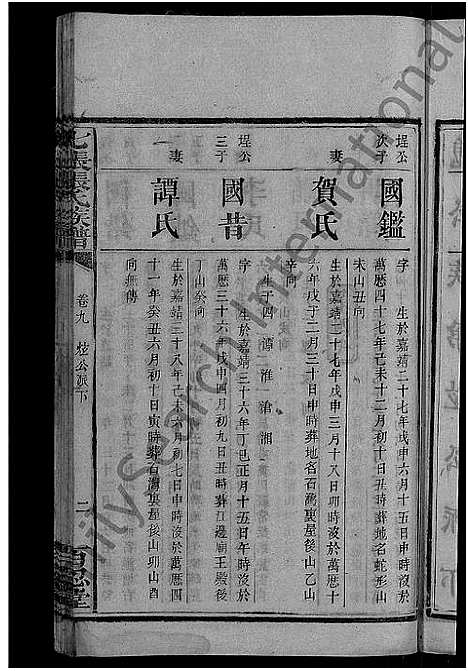 埕公
次子
國鑑
字 生於嘉靖二十七年戊申六月十五日申時沒於
萬歷四十七年己未十二月初十日丑時葬地名蛇形山
未山丑向
妻
賀氏
生於嘉靖二十七年戊申三月十八日卯時沒於萬歷十
六年戊子二月三十日申時葬地名百灣裏屋後山乙山
辛向
埕公
三子
國昔
字 生於嘉靖三十六年丁巳正月十五日午時沒於
萬歷三十六年戊申四月初九日丑時葬江邊廟王殿後
丁山癸向
生子四 淮 滄 湘
妻
譚氏
生於嘉靖三十八年己未六月初七日申時沒於萬歷四
十一年癸丑六月初十日寅時葬百灣裏屋後山卯山酉
向 傳
七張張氏族譜
卷九
公派下
二
百忍堂